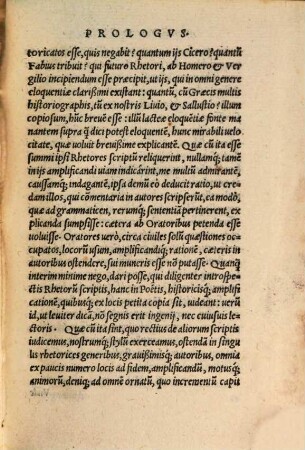 PROLOGVS.
toricatos esse, quis negabit? quantum ijs Cicero? quantũ
Fabius tribuit? qui futuro Rhetori, ab Homero & Ver
gilio incipiendum esse præcipit, ut ijs, qui in omni genere
eloquentiæ clarißimi existant: quantũ, cũ Græcis multis
historiographis, tũ ex nostris Liuio, & Sallustio? illum
copiosum, hũc breuẽ esse: illũ lacteæ eloquẽtiæ fonte ma
nantem supra q̃ dici potest eloquentẽ, hunc mirabili uelo
citate, quæ uoluit breuißime explicantẽ. Quæ cũ ita es
se summi ipsi Rhetores scriptũ reliquerint, nullamq; tamẽ
in ijs amplificandi uiam indicãrint, me multũ admirante,
caussamq; indagantẽ, ipsa demũ eò deducit ratio, ut cre-
dam illos, qui commentaria in autores scripserũt, ea modò,
quæ ad grammaticen, rerumq; sententiã pertinerent, ex
plicanda sumpsisse: cætera ab Oratoribus petenda esse
uoluisse. Oratores uerò, circa ciuiles solũ quæstiones oc=
cupatos, locorũ usum, amplificandiq; rationẽ, cæteris in
autoribus ostendere, sui muneris esse nõ putasse. Quanq̃
interim minime nego, dari posse, qui diligenter introspe=
ctis Rhetorũ scriptis, hanc in Poëtis, historicisq; amplifi
cationẽ, quibusq; ex locis petita copia sit, uideant: uerũ
id, ut leuiter dicã, nõ segnis erit ingenij, nec cuiusuis le=
ctoris. Quæ cũ ita sint, quo rectius de aliorum scriptis
iudicemus, nostrumq; stylũ exerceamus, ostendã in singu
lis rhetorices generibus, grauißimisq; autoribus, omnia
ex paucis numero locis ad fidem, amplificandũ, motusq;
animorũ, deniq; ad omnẽ ornatũ, quo incrementũ capit